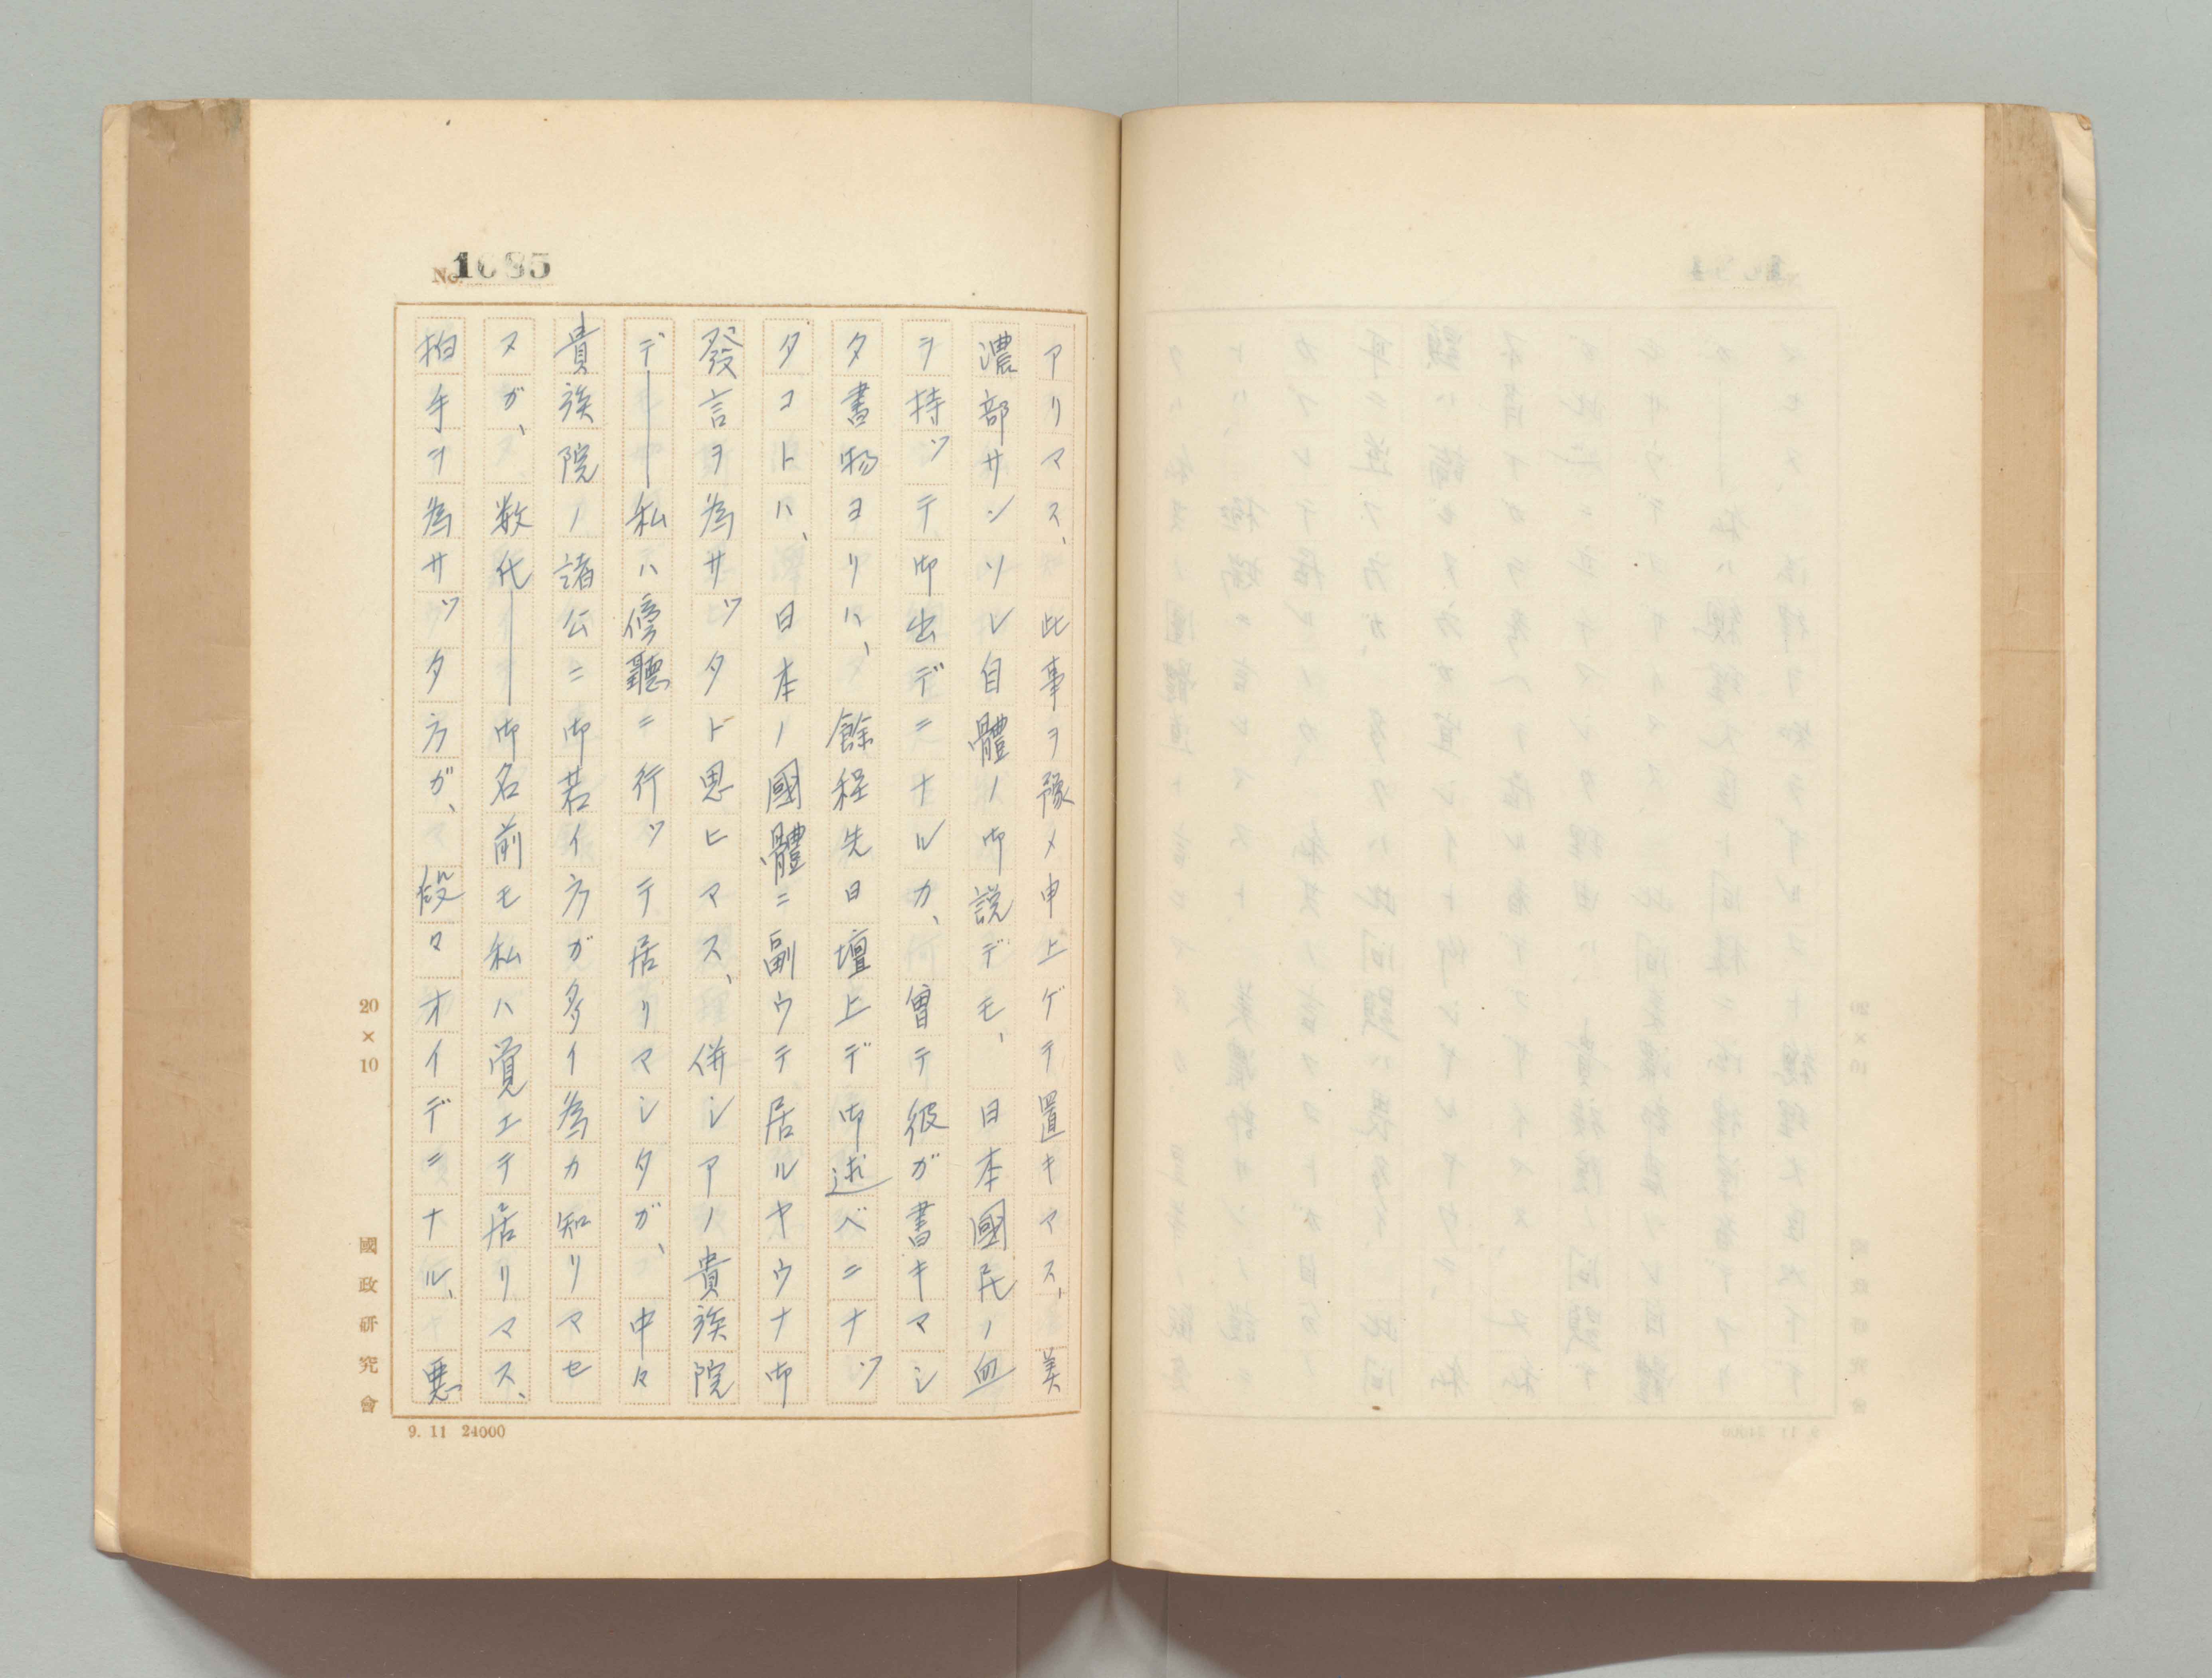 No. 1085
アリマス、此事ヲ豫メ申上ゲテ置キマス、美
濃部サンソレ自體ノ御説デモ、日本國民ノ血
ヲ持ツテ御出デニナルカ、曾テ彼ガ書キマシ
タ書物ヨリハ、餘程先日壇上デ御述ベニナツ
タコトハ、日本ノ國體ニ副ウテ居ルヤウナ御
發言ヲ為サツタト思ヒマス、併シアノ貴族院
デ――私ハ傍聽ニ行ツテ居リマシタガ、中々
貴族院ノ諸公ニ御若イ方ガ多イ為カ知リマセ
ヌガ、数化――御名前モ私ハ覚エテ居リマス、
拍手ヲ為サツタ方ガ、段々オイデニナル、悪
20×10
國政研究會
9. 11 24000